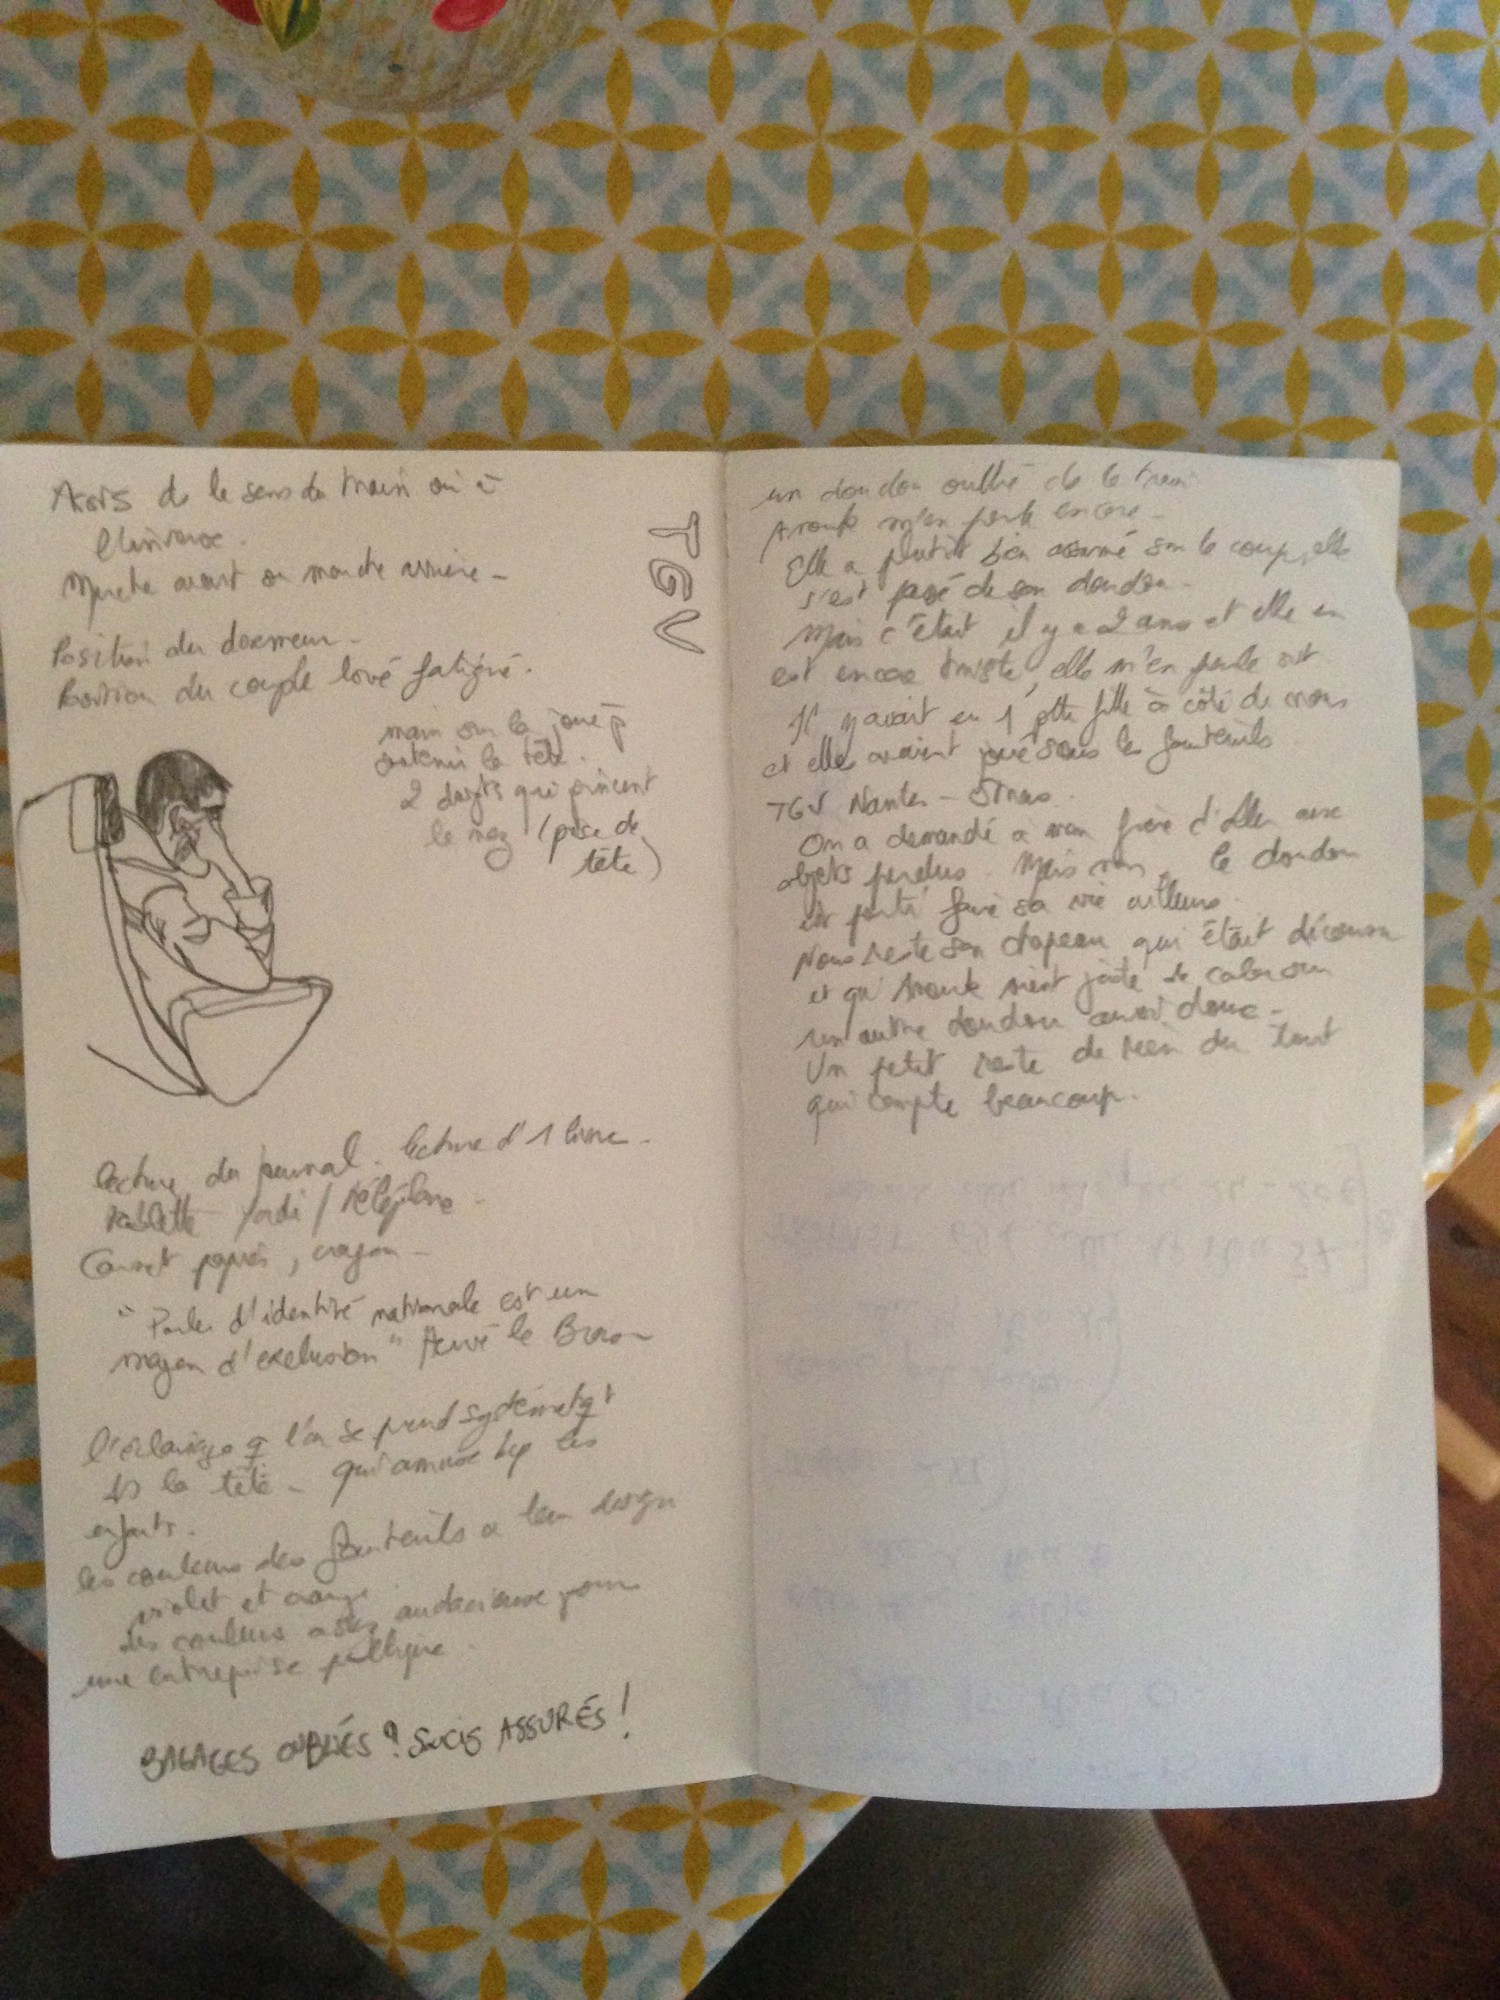 Assis ds le sens du train ou à
l'inverse.
Marche avant ou marche arrière -
Position du dormeur -
Position du couple lové fatigué.
TGV
main sur la joue p
soutenir la tête.
2 doigts qui pincent
le nez (prise de
tête)
lecture du journal. lecture d'1 livre -
tablette ordi / téléphone -
Carnet papier, crayon -
" Parler d'identité nationale est un
moyen d'exclusion " Hervé le Bras
l'éclairage q l'on se prend systématiqt
ds la tête - qui amuse bcp les
enfants.
les couleurs des fauteuils & leur design
violet et orange
des couleurs assez audacieuses pour
une entreprise publique.
BAGAGES OUBLIÉS ? SOUCIS ASSURÉS !
un doudou oublié ds le train
Anouk m'en parle encore -
Elle a plutôt bien assumé sur le coup, elle
s'est passé de son doudou -
Mais c'était il y a 2 ans et elle en
est encore triste, elle m'en parle svt
Il y avait eu 1 ptte fille à côté de nous
et elles avaient joué sous les fauteuils
TGV Nantes - Stras.
On a demandé à mon frère d'aller aux
objets perdus. Mais non, le doudou
est parti faire sa vie ailleurs.
Nous reste son chapeau qui était décousu
et qu'Anouk vient juste de sur
un autre doudou aussi doux -
Un petit reste de rien du tout
qui compte beaucoup.